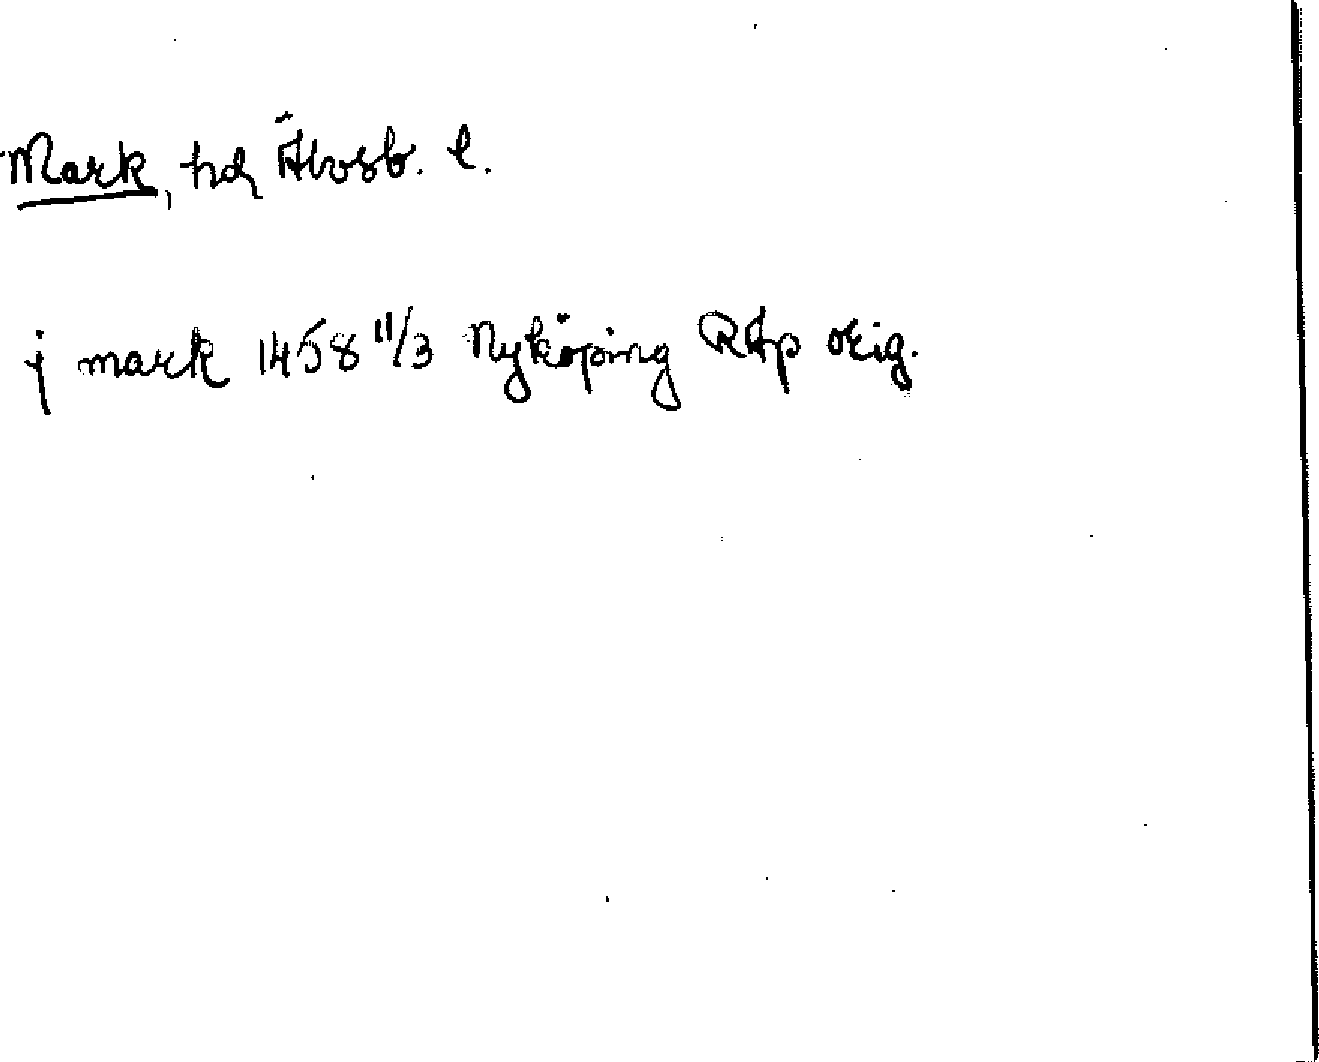 Mark, hd, Älvsb. l.
j mark 1458 11/3 Nyköping RAp orig.